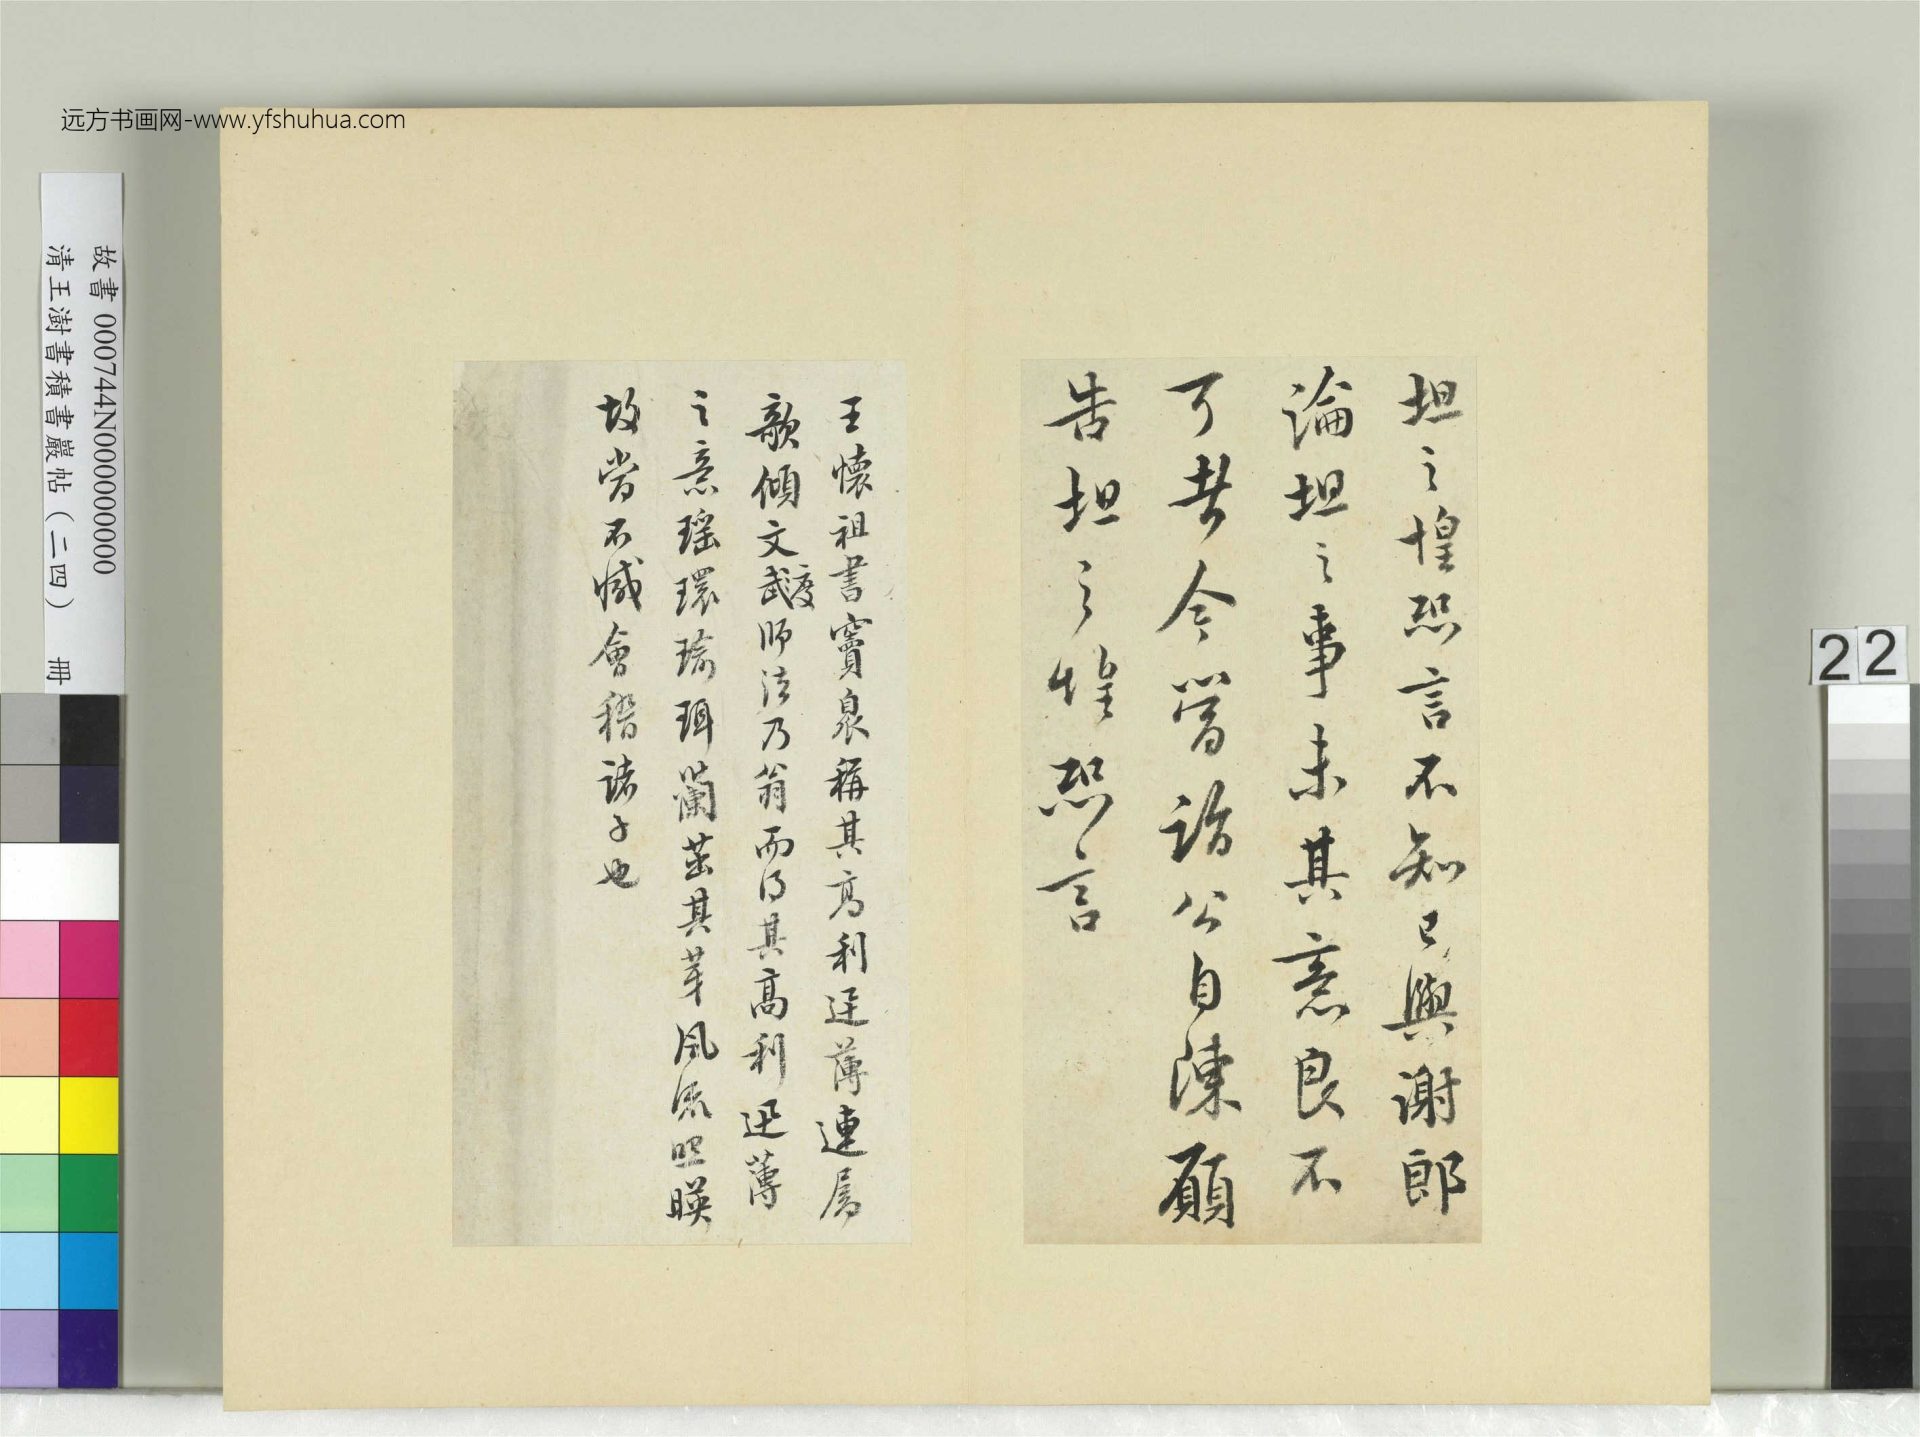 远方书画网-www.yfshuhua.com
故書 000744N000000000
清王澍書積書巖帖（二四） 冊
22
坦之惶恐言不知已與謝郎
論坦之事未其意良不
可者今當詣公自陳願
告坦之惶恐言
王懷祖書竇泉稱其高利迅薄連屬
欹傾文武師法乃翁而得其高利迅薄
度
之意瑤環瑜珥蘭茁其芽風流照映
故當不減會稽諸子也